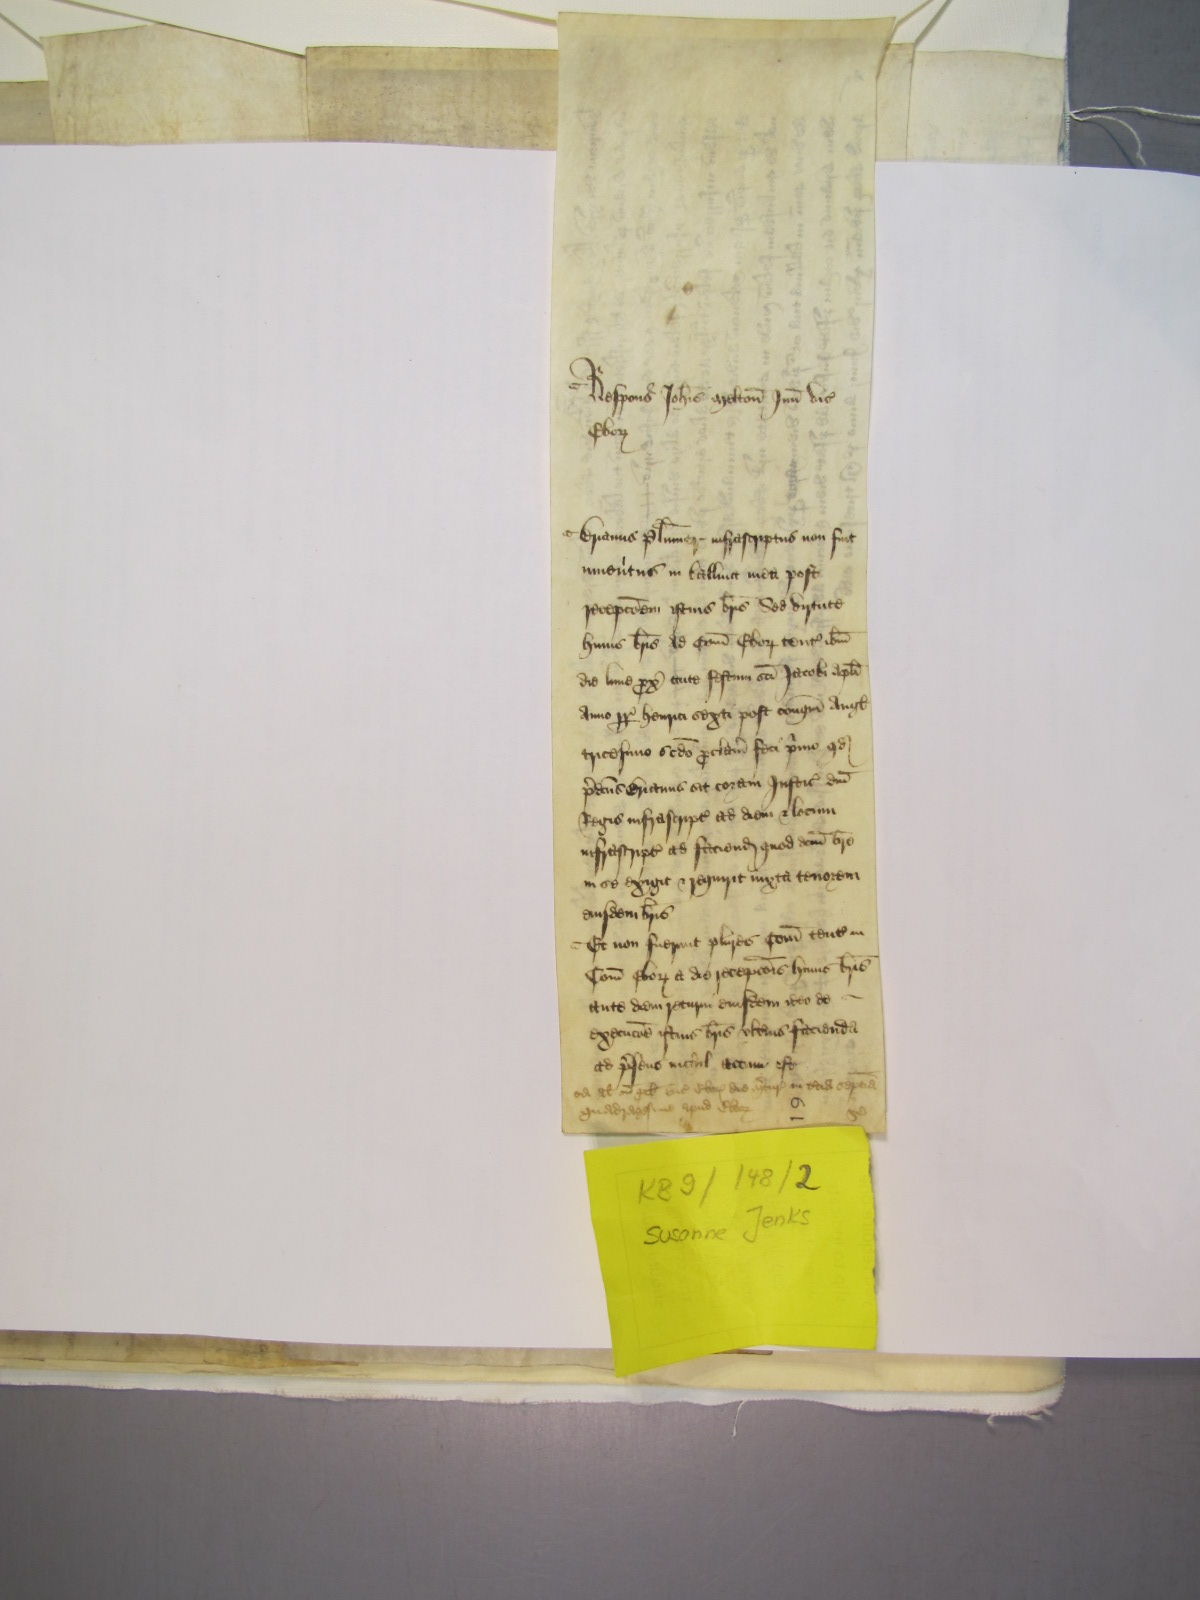 Respons Joh̄is Melton Jun̄ vic̄
Ebor̄
Brianus P̄lmer infrascriptus non fuit
inuentus in balliua mea post
recepcōem istius b̄ris Sed virtute
huius b̄ris ad Com̄ Ebor̄ tent̄ ib̄m
die lune p̄x̄ ante festum sc̄i Jacobi ap̄li
Anno r̄r̄ Henrici sexti post conq̄m Angl̄
tricesimo sc̄do p̄clam̄ feci p̄imo qd̄
p̄dc̄us Brianus sit coram Justic̄ dn̄i
Regis infrascript̄ ad diem & locum
infrascript̄ ad faciend̄ quod dc̄m b̄re
in se exigit & requirit iuxta tenorem
eiusdem b̄ris
Et non fuerunt plures Com̄ tent̄ in
Com̄ Ebor̄ a die recepcōis huius b̄ris
ante diem return̄ eiusdem ideo de
execucōe istius b̄ris vlterius facienda
ad p̄sens nichil actum est
quadragesime apud Ebor̄
19
KB 9/ 148/2
Susanne Jenks